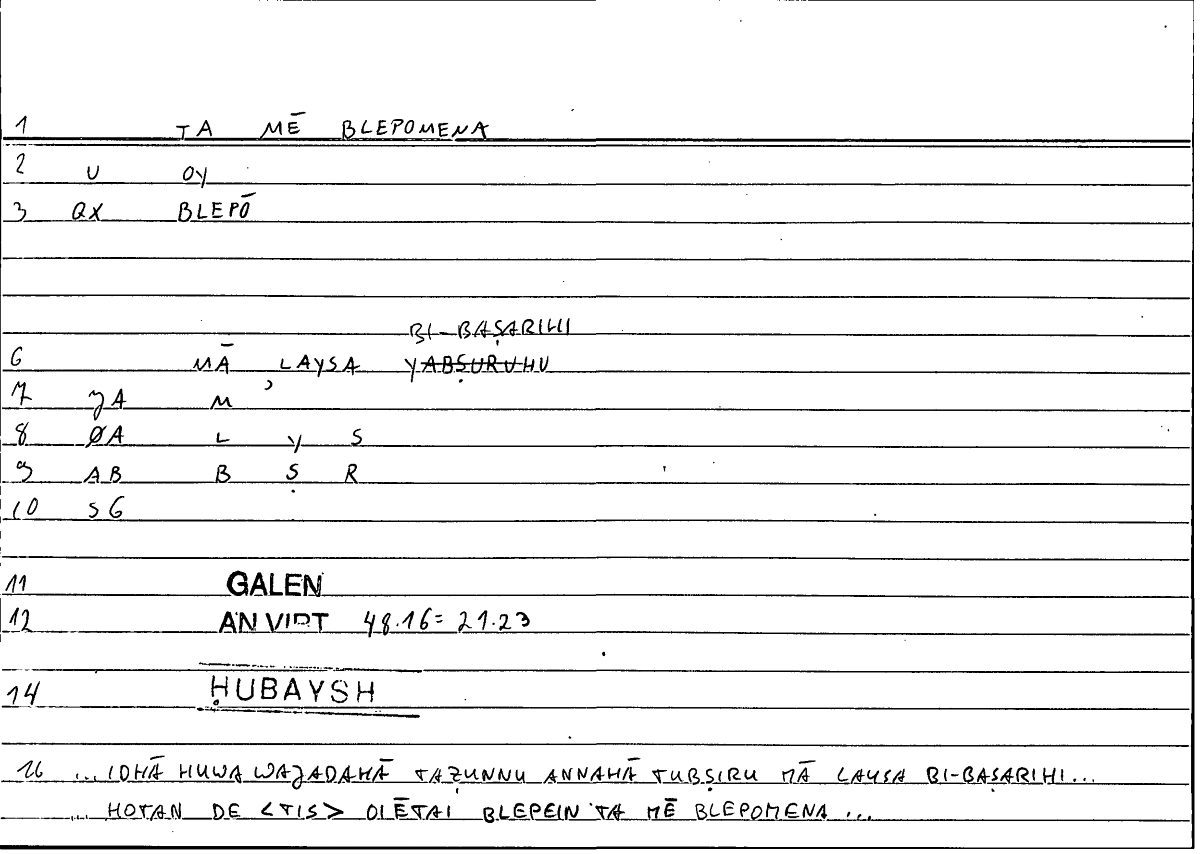 1 TA MĒ BLEPOMENA
2 U OY
3 QX BLEPŌ
BI-BAṢARIHI
6 MĀ LAYSA YABṢURUHU
7 JA M
8 ØA L Y S
9 AB B Ṣ R
10 SG
11 GALEN
12 AN VIRT 48.16= 21.23
14 ḤUBAYSH
16 ... IDHĀ HUWA WAJADAHĀ TAẒUNNU ANNAHĀ TUBṢIRU MĀ LAYSA BI-BAṢARIHI...
... HOTAN DE <TIS> OIĒTAI BLEPEIN TA MĒ BLEPOMENA ...